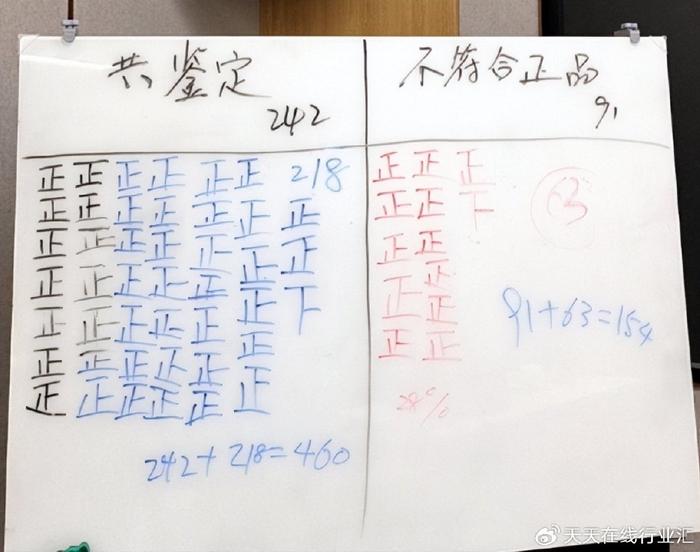 共鉴定
242
不符合正品
91
正正正正正正 218
正正正正正正正
正正正正正正正
正正正正正正下
正正正正正正
正正正正正正
正正正正正正
242+218=460
正正正
正正下
正正
正正
正正
正正
63
91+63=154
28%
天天在线行业汇